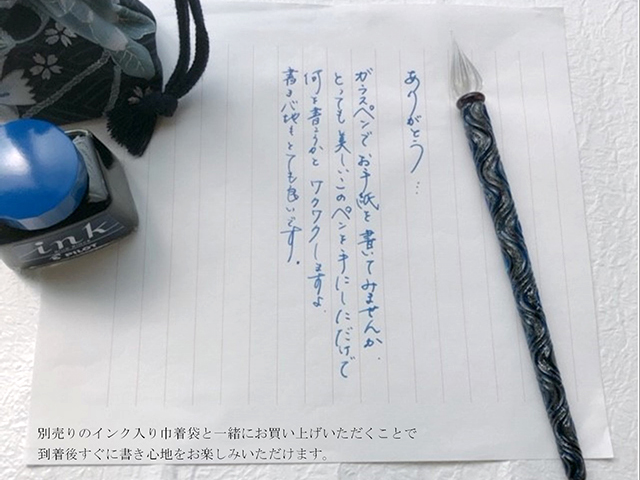 ありがとう…
ガラスペンでお手紙を書いてみませんか。
とっても美しいこのペンを手にしただけで
何を書こうかとワクワクしますよ。
書き心地もとても良いです。
ink
PILOT
別売りのインク入り巾着袋と一緒にお買い上げいただくことで
到着後すぐに書き心地をお楽しみいただけます。